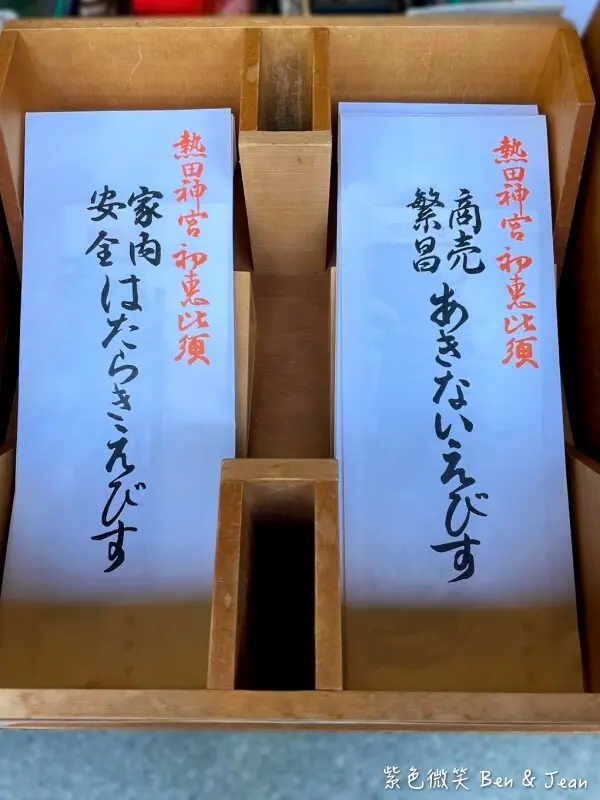 熱田神宮 初恵比須
商売
繁昌
あきないえびす
熱田神宮 初恵比須
家内
安全
はたらきえびす
紫色微笑 Ben & Jean